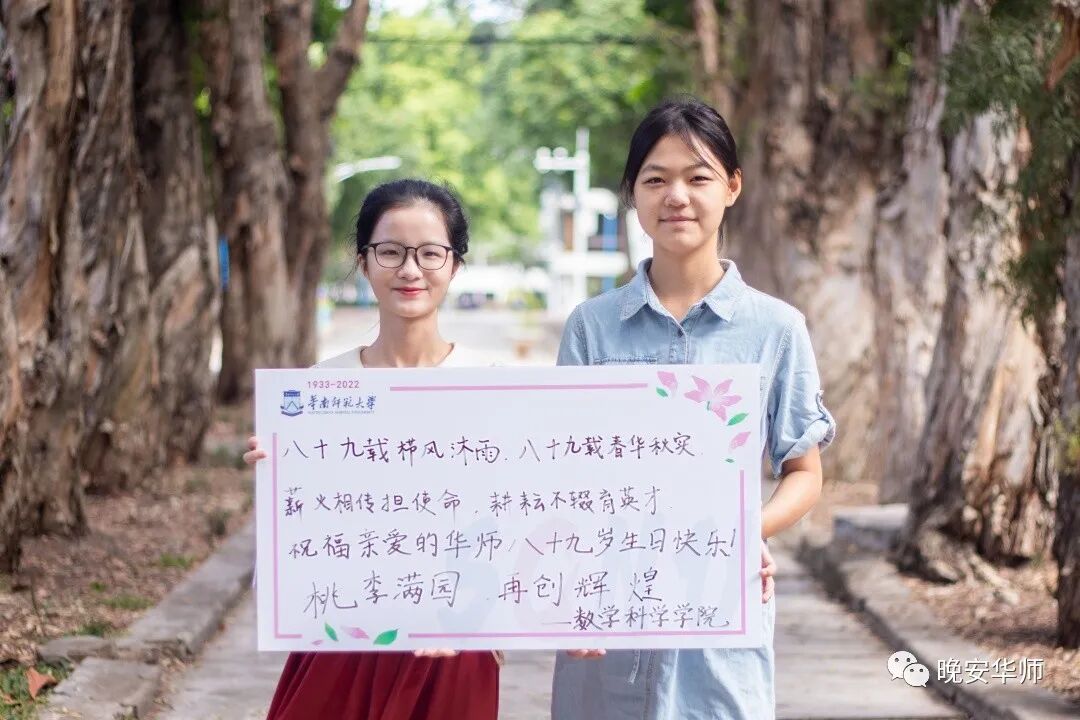 1933-2022
華南师范大学
SOUTH CHINA NORMAL UNIVERSITY
八十九载栉风沐雨，八十九载春华秋实，
薪火相传担使命，耕耘不辍育英才
祝福亲爱的华师八十九岁生日快乐！
桃李满园 再创辉煌
——数学科学学院
晚安华师